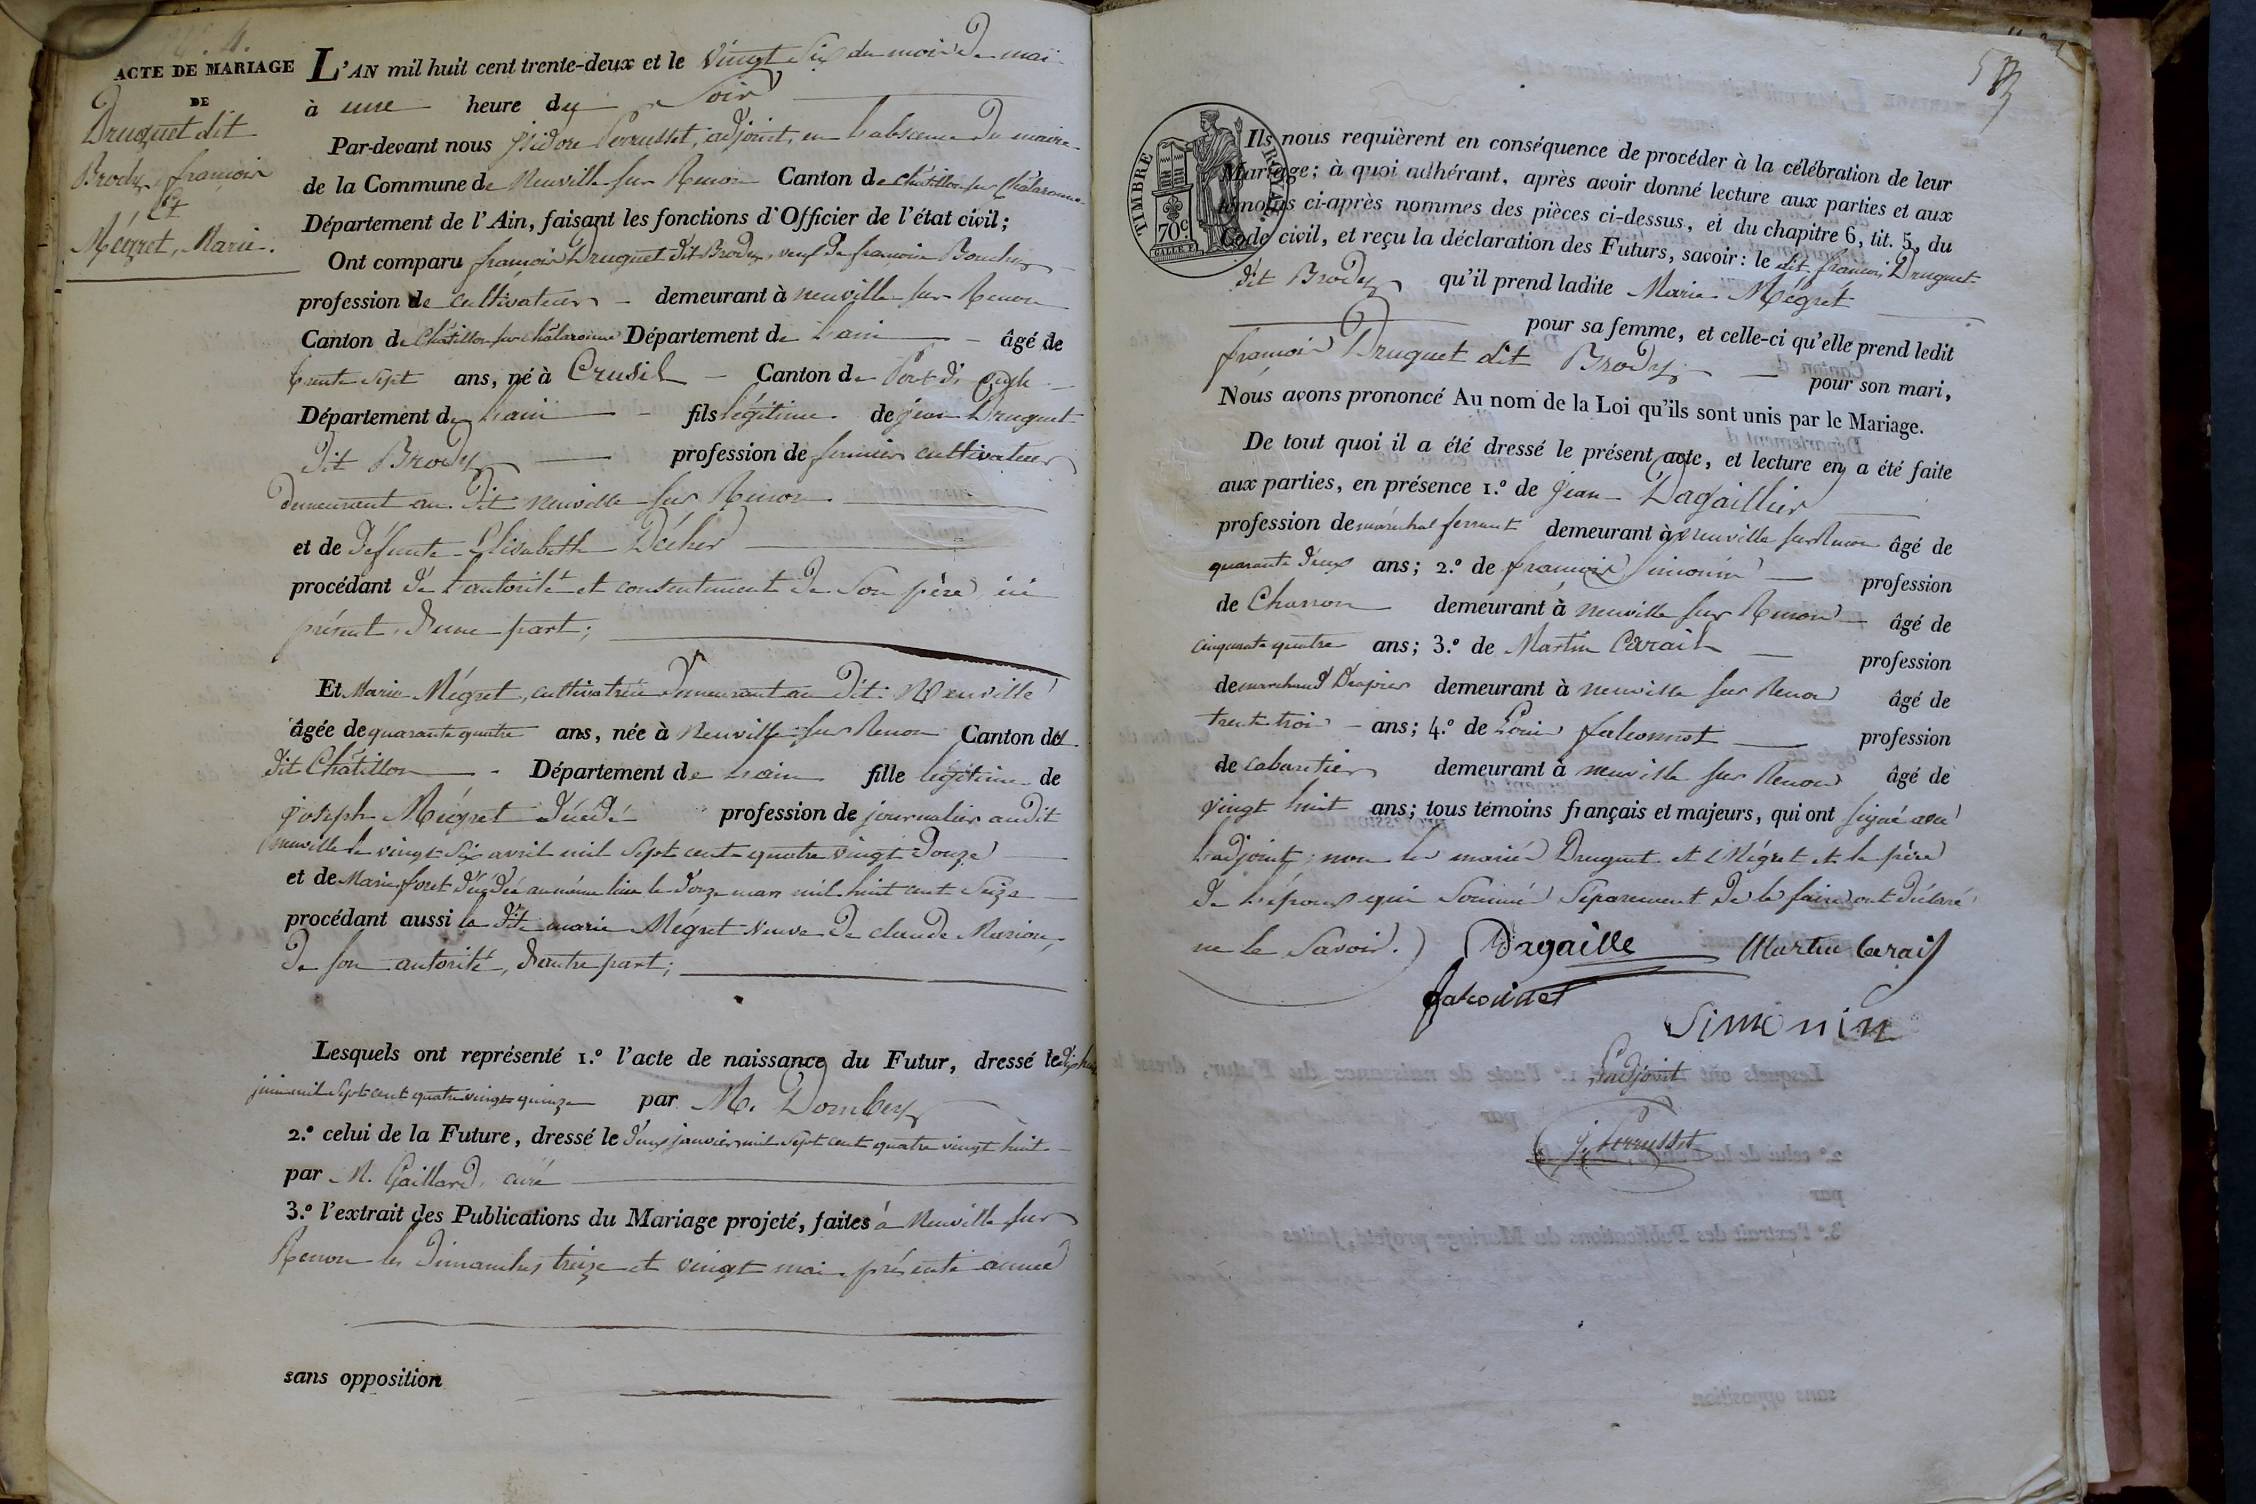 4.
ACTE DE MARIAGE
DE
Druguet dit
Brody, françois
Et
Mégret, Marie.
L'AN mil huit cent trente-deux et le vingt six du mois de mai
à une heure du Soir
Par-devant nous isidore Perrusset, adjoint, en l'absence du maire
de la Commune de Neuville sur Renon Canton de Châtillon sur Chalaronne
Département de l'Ain, faisant les fonctions d'Officier de l'état civil;
Ont comparu françois Druguet dit Brody, veuf de françoise Bouchy
profession de cultivateur demeurant à neuville sur Renon
Canton de Châtillon sur chalaronne Département de l'ain âgé de
trente sept ans, né à Crusil Canton de Pont de veyle
Département de l'ain fils légitime de jean Druguet
dit Brody profession de fermier cultivateur
demeurant au dit neuville sur Renon
et de défunte Elisabeth Décher
procédant de l'autorité et consentement de Son père ici
présent, d'une part;
Et Marie Mégret, cultivatrice demeurant au dit Neuville
âgée de quarante quatre ans, née à Neuville sur Renon Canton du
dit Châtillon Département de l'ain fille légitime de
joseph Mégret décédé profession de journalier audit
neuville le vingt six avril mil sept cent quatre vingt douze
et de Marie foret décédée au même lieu le douze mars mil huit cent Seize
procédant aussi la dite marie Mégret veuve de claude Marion,
de son autorité, d'autre part;
Lesquels ont représenté 1.º l'acte de naissance du Futur, dressé le dix huit
juin mil sept cent quatre vingt quinze par M. Dombey
2.º celui de la Future, dressé le deux janvier mil sept cent quatre vingt huit
par M. Gaillard, curé
3.º l'extrait des Publications du Mariage projeté, faites à Neuville sur
Renon les dimanches treize et vingt mai présente année
sans opposition
TIMBRE ROYAL
70c.
Ils nous requièrent en conséquence de procéder à la célébration de leur
Mariage; à quoi adhérant, après avoir donné lecture aux parties et aux
témoins ci-après nommés des pièces ci-dessus, et du chapitre 6, tit. 5, du
Code civil, et reçu la déclaration des Futurs, savoir: le dit françois Druguet
dit Brody qu'il prend ladite Marie Mégret
pour sa femme, et celle-ci qu'elle prend ledit
françois Druguet dit Brody pour son mari,
Nous avons prononcé Au nom de la Loi qu'ils sont unis par le Mariage.
De tout quoi il a été dressé le présent acte, et lecture en a été faite
aux parties, en présence 1.º de jean Dagaillier
profession de maréchal ferrant demeurant à neuville sur Renon âgé de
quarante deux ans; 2.º de françois Simonin profession
de Charron demeurant à neuville sur Renon âgé de
cinquante quatre ans; 3.º de Martin Cerail profession
de marchand Drapier demeurant à neuville sur Renon âgé de
trente trois ans; 4.º de Louis falconnet profession
de cabaretier demeurant à neuville sur Renon âgé de
vingt huit ans; tous témoins français et majeurs, qui ont signé avec
l'adjoint, non les mariés Druguet et Mégret et le père
de l'époux qui Sommés Séparément de le faire ont déclaré
ne le Savoir.
Dagaille Martin Cerail
falconnet
Simonin
L'adjoint
j. Perrusset